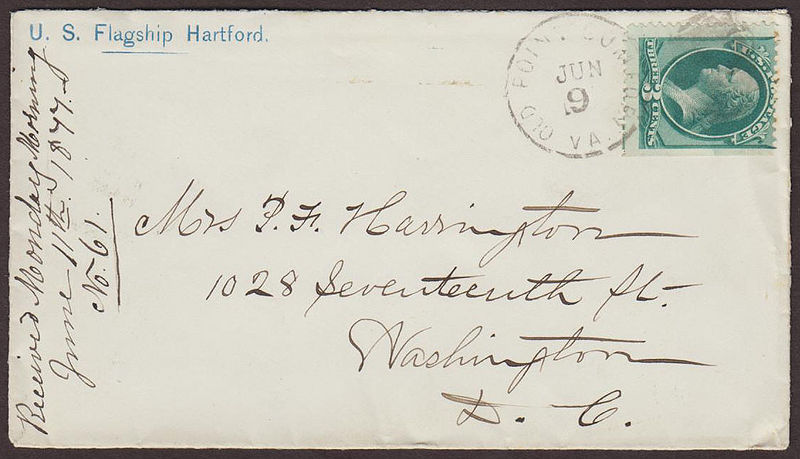 U. S. Flagship Hartford.
OLD POINT COMFORT
JUN
9
VA.
U.S. POSTAGE
THREE 3 CENTS
Mrs P. F. Harrington
1028 Seventeenth St.
Washington
D. C.
Received Monday Morning
June 11th 1877.
No. 61.